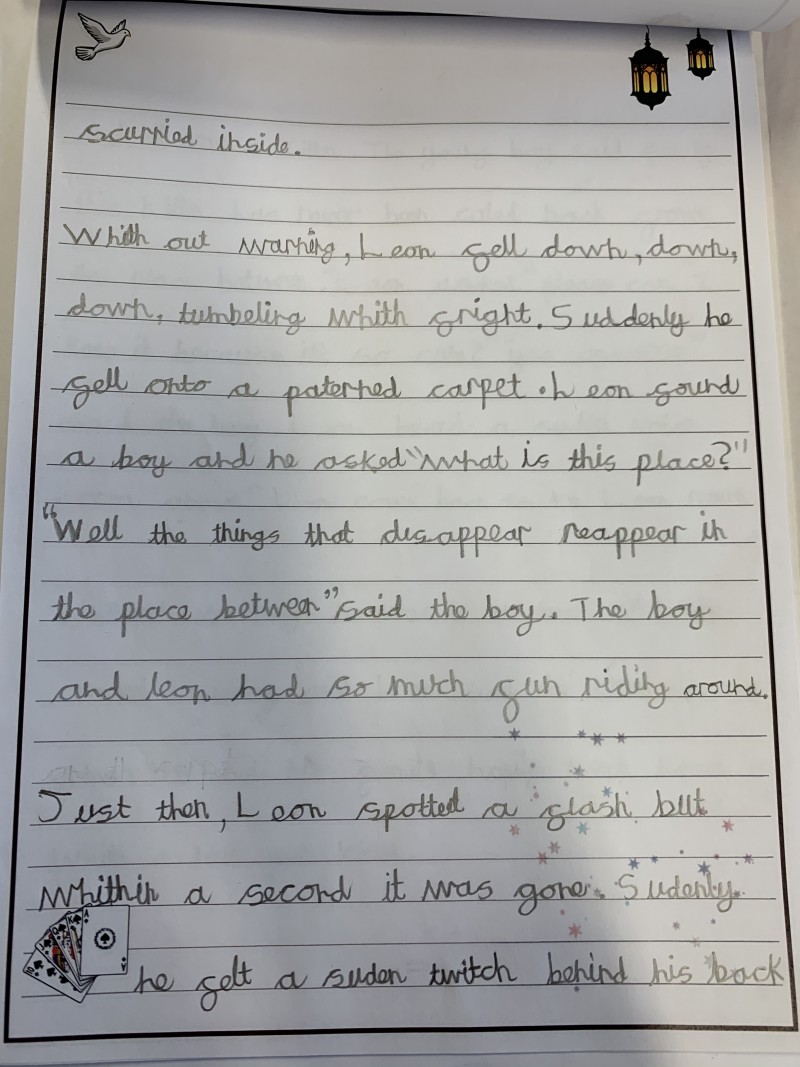 scurried inside.
Whith out warning, Leon fell down, down,
down, tumbeling whith fright. Suddenly he
fell onto a paterned carpet. Leon found
a boy and he asked "what is this place?"
"Well the things that disappear reappear in
the place between" said the boy. The boy
and leon had so much fun riding around.
Just then, Leon spotted a flash but
whithin a second it was gone. Sudenly
he felt a suden twitch behind his back